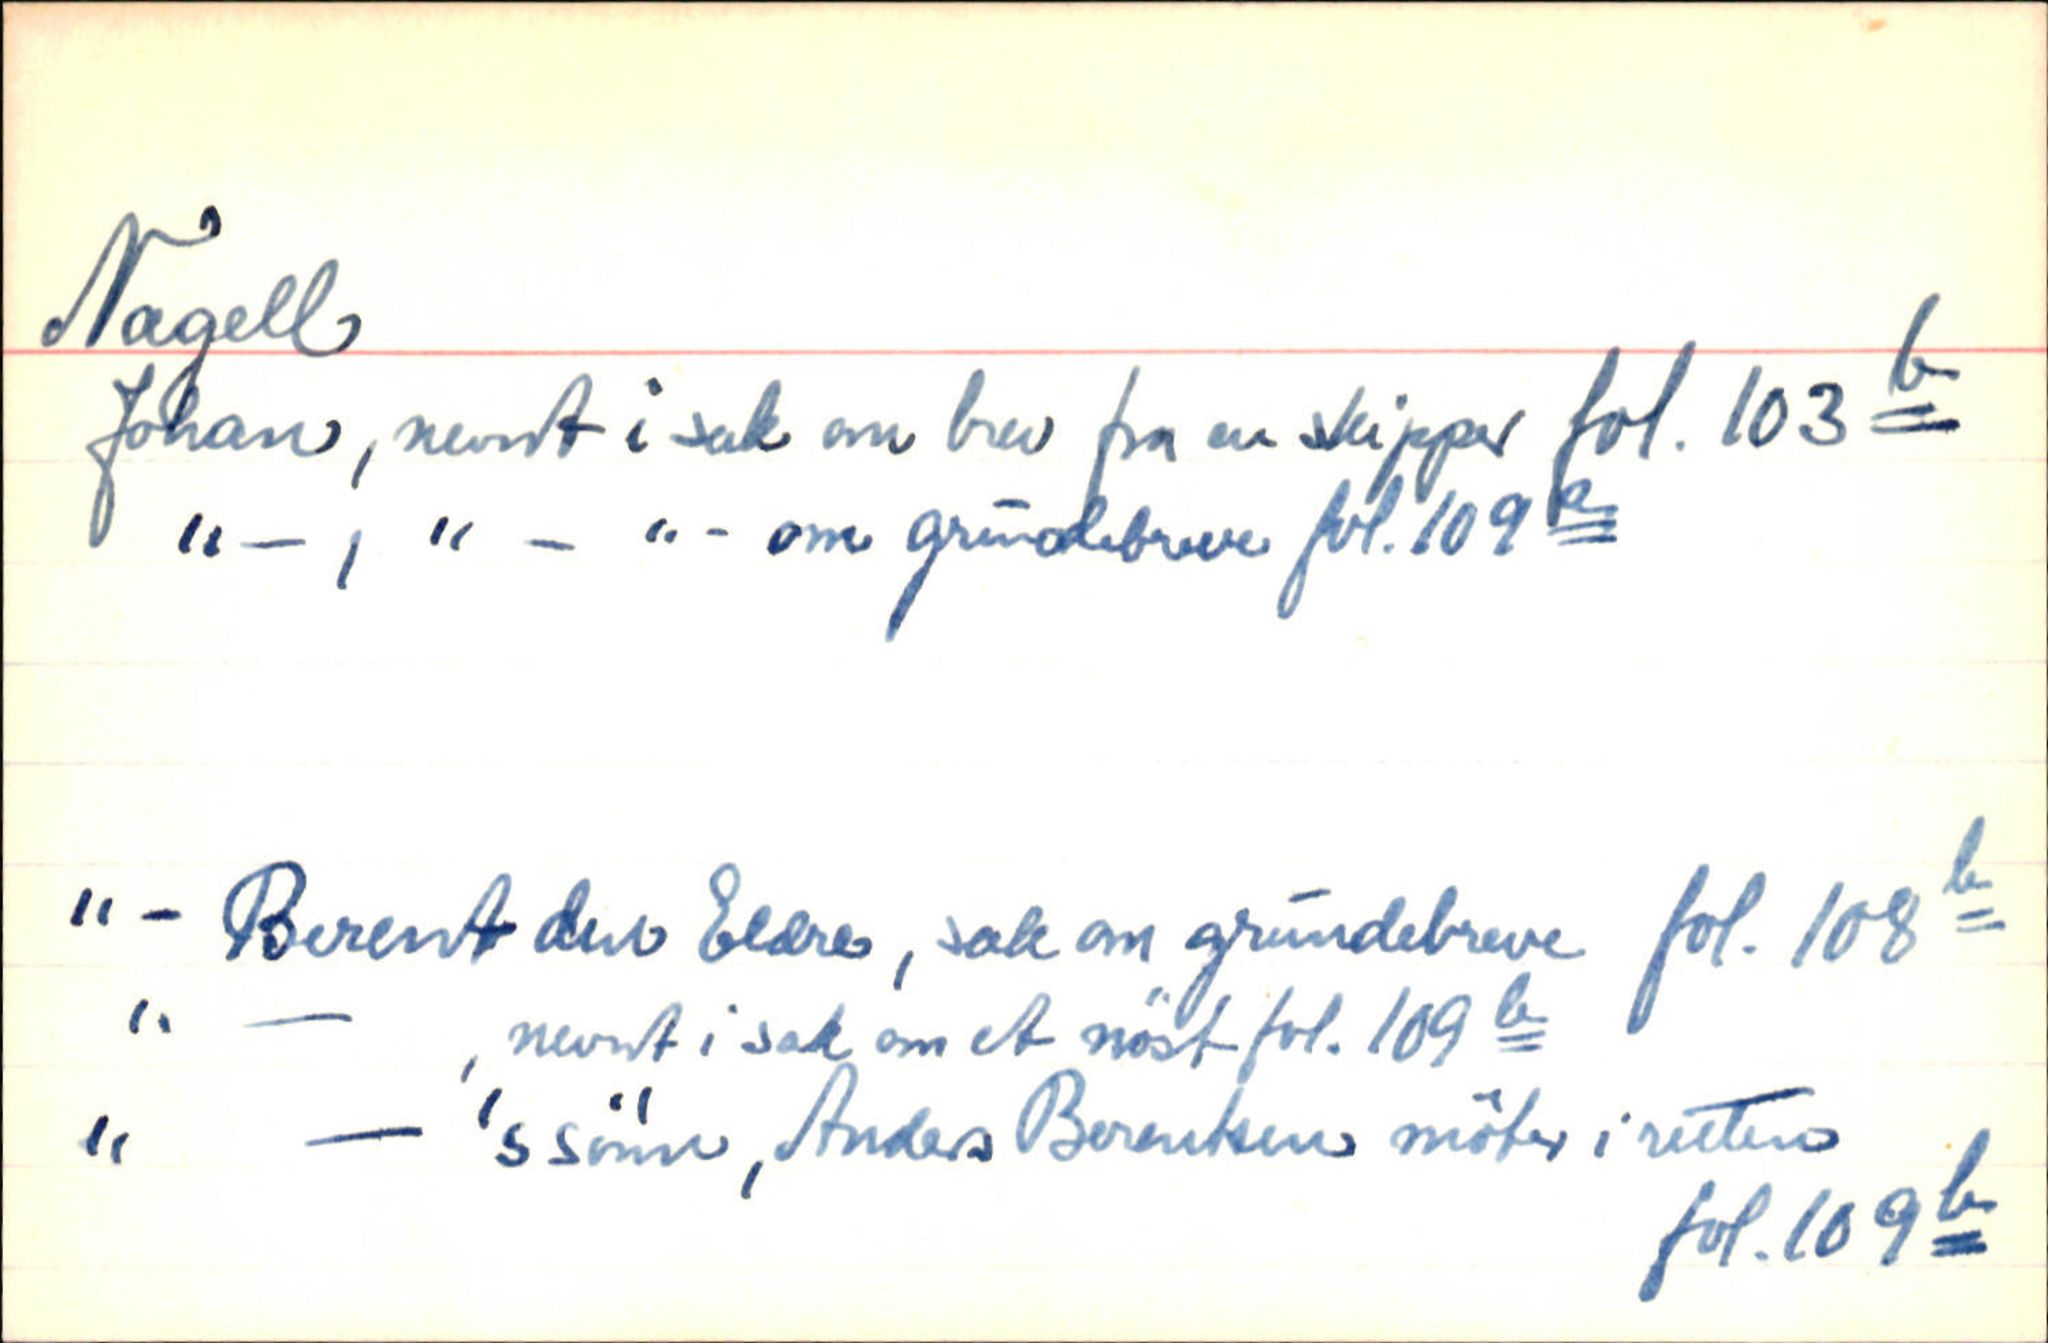 Nagell
Johan, nevnt i sak om brev fra en skipper fol. 103 b
"—, " — " - om grundebreve fol. 109 a
" - Berent den Eldre, sak om grundebreve fol. 108 b
" — , nevnt i sak om et nöst fol. 109 b
" — 's sönn, Anders Berentsen möter i retten
fol. 109 b